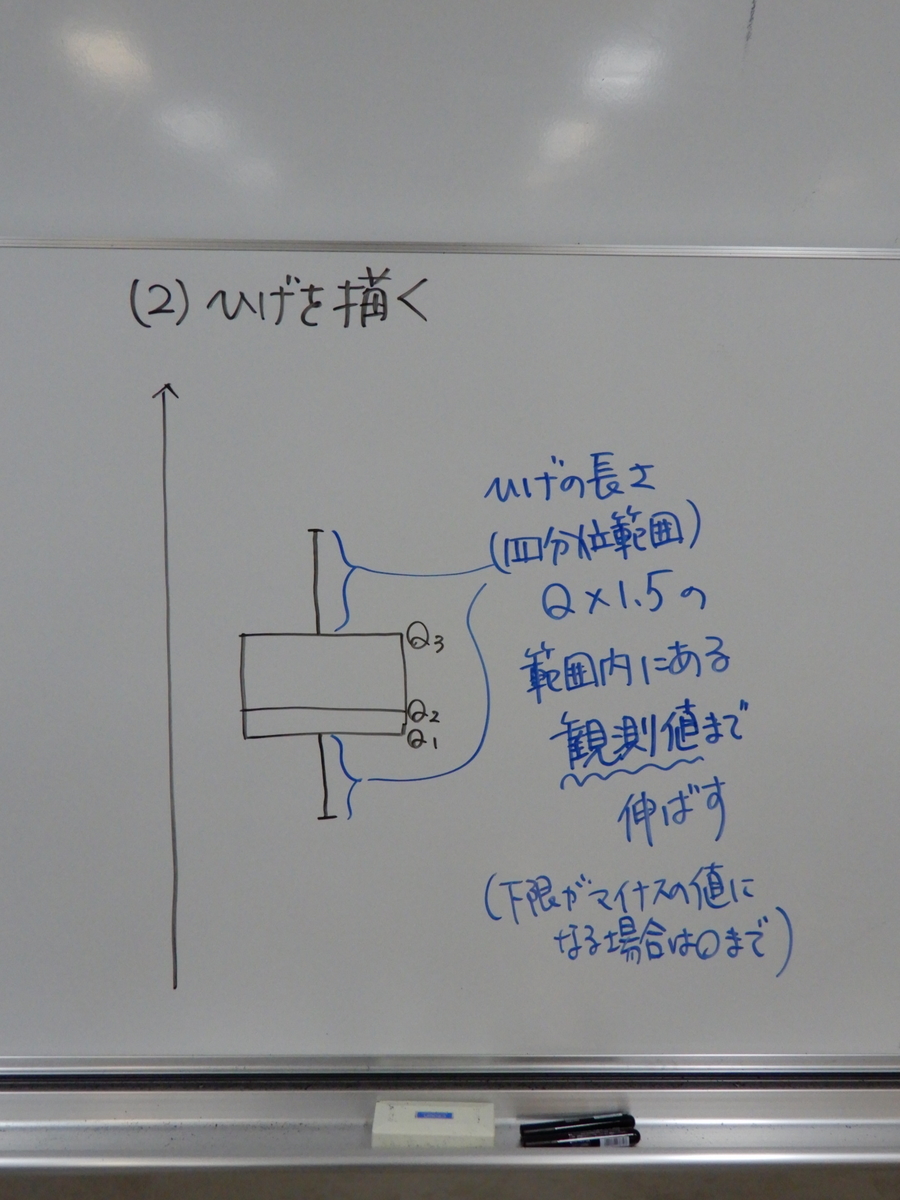 (2) ひげを描く
ひげの長さ
(四分位範囲)
Q×1.5の
範囲内にある
観測値まで
伸ばす
(下限がマイナスの値に
なる場合は0まで)
Q3
Q2
Q1